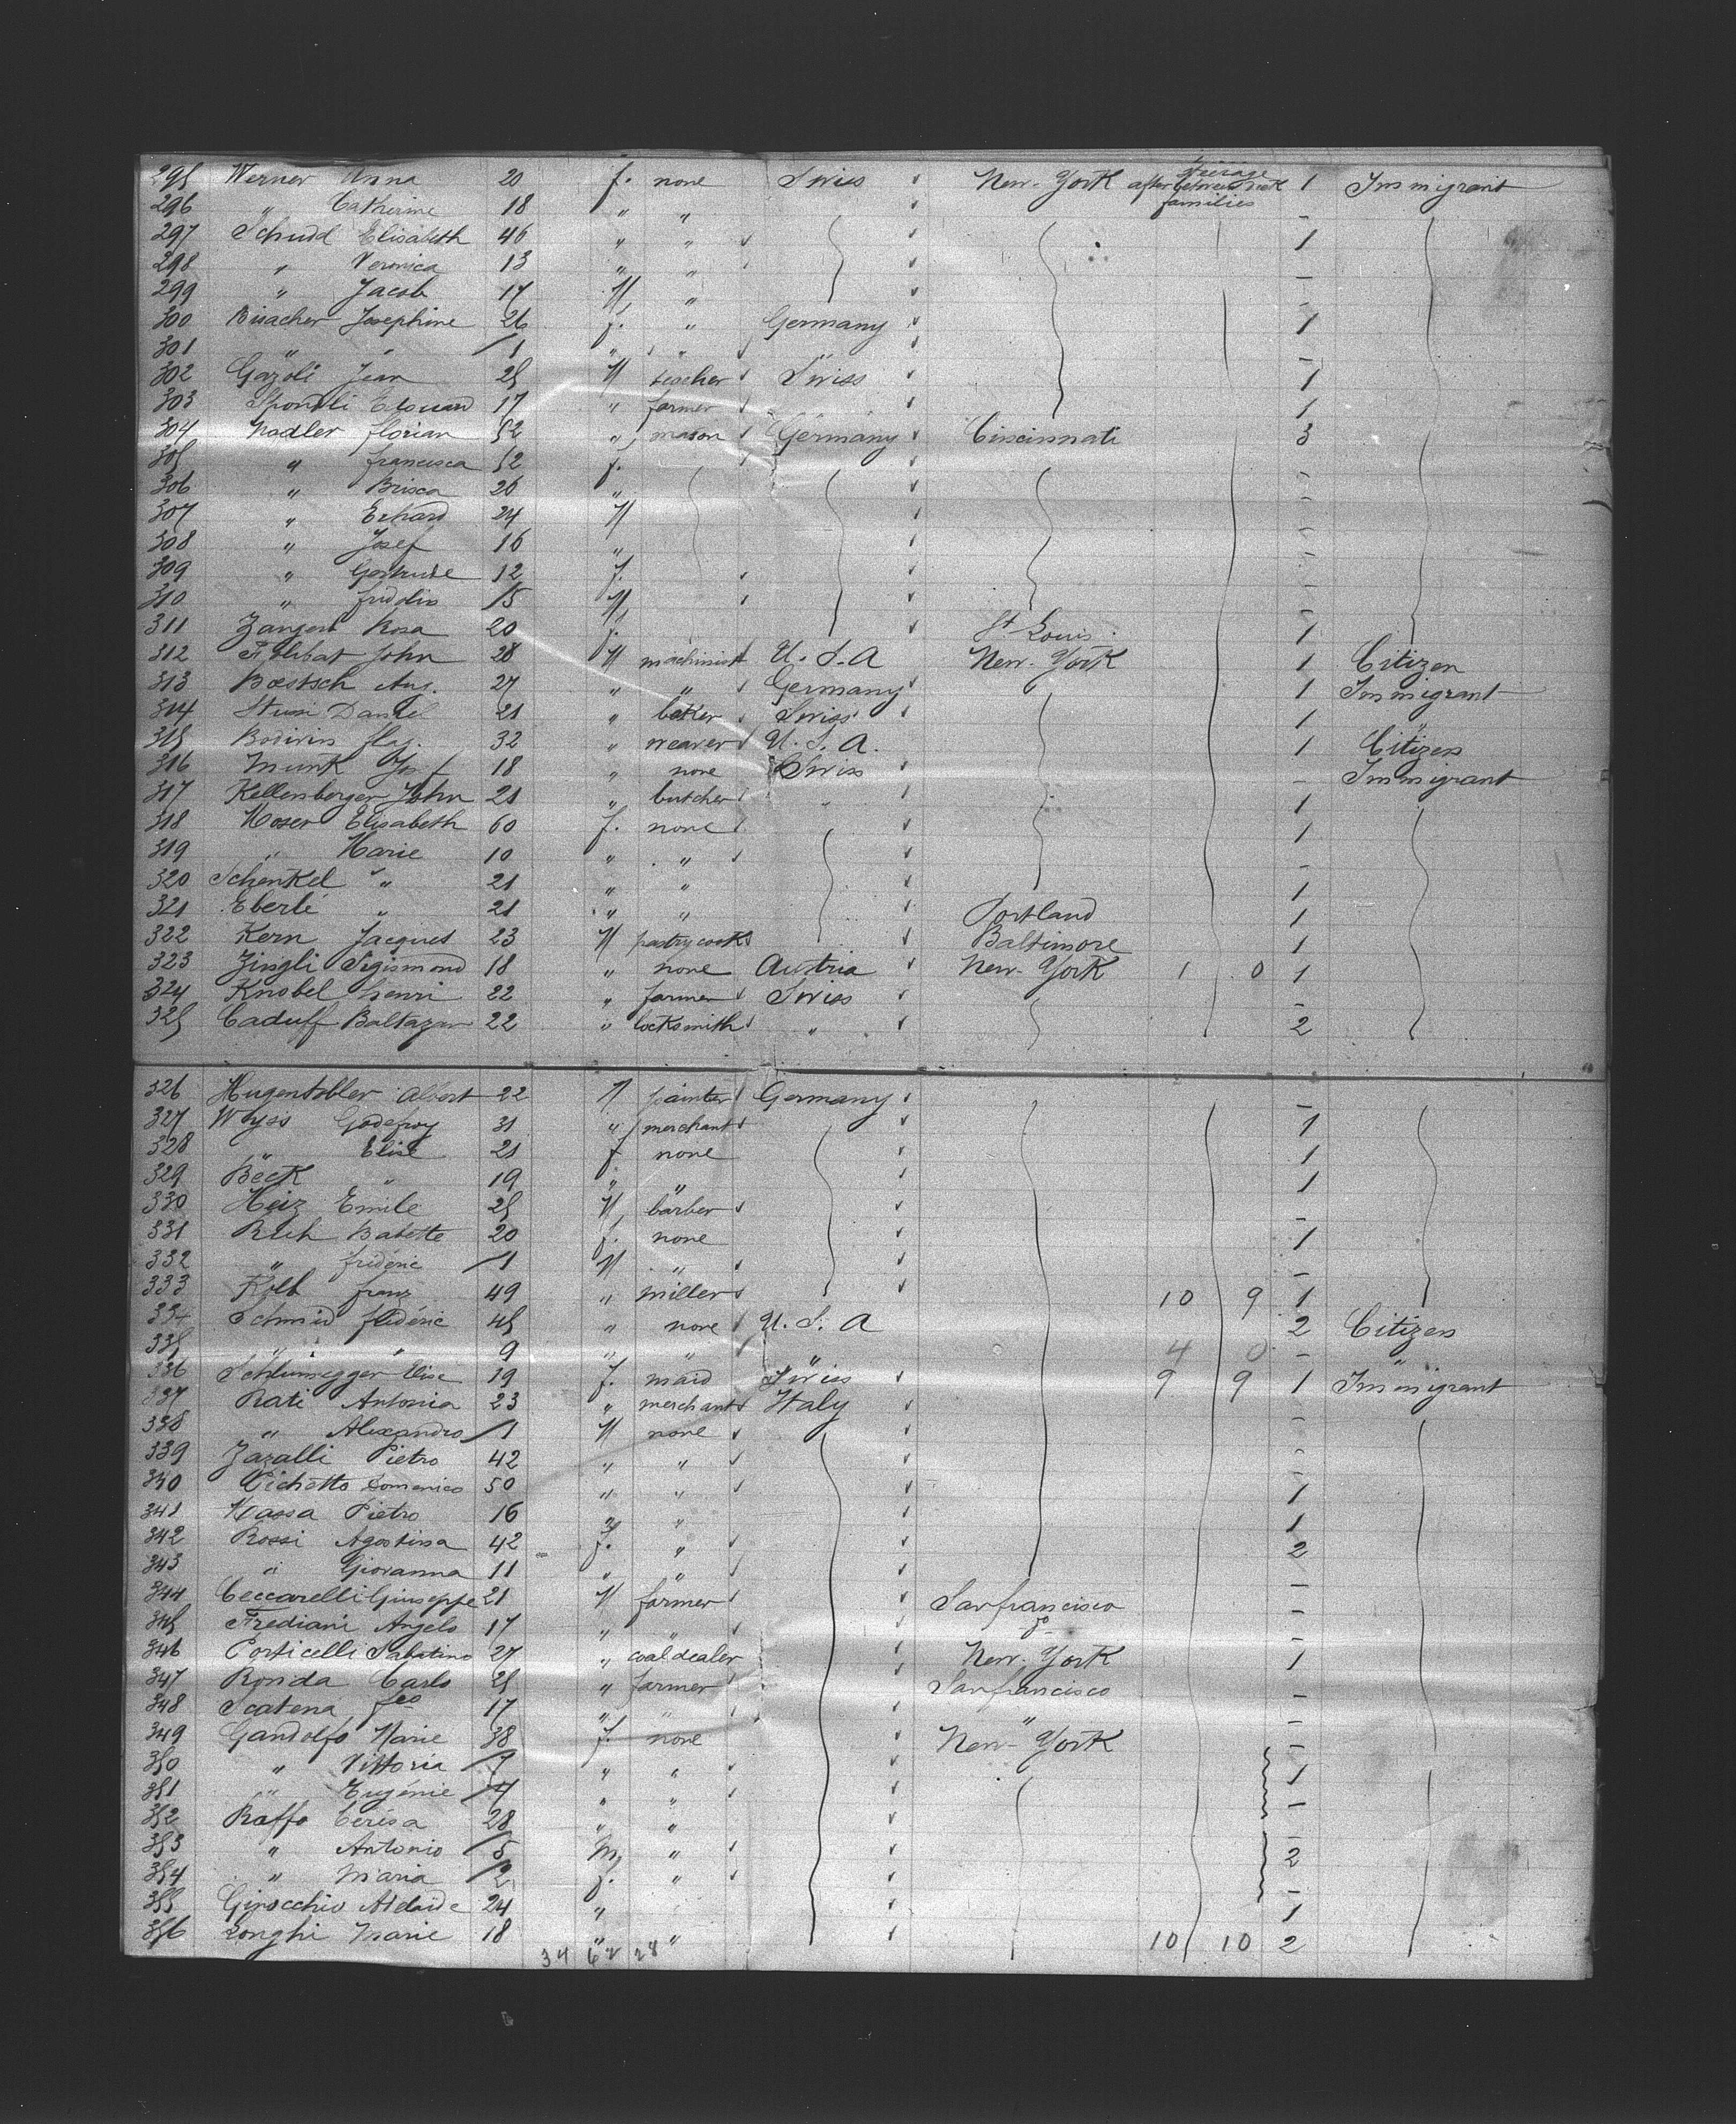 295 Werner Anna 20 f. none Swiss New-York Steerage after between deck families 1 Immigrant
296 " Catherine 18 " " -
297 Schudd Elisabeth 46 " " 1
298 " Veronica 13 " " -
299 " Jacob 17 M, " -
300 Bisacher Josephine 26 f. " Germany 1
301 " " /1 " " " -
302 Gazoli Jean 25 M teacher Swiss 1
303 Spondli Edouard 17 " farmer 1
304 Nadler florian 52 " mason Germany Cincinnati 3
305 " francisca 52 f. -
306 " Brisca 26 " -
307 " Erhard 24 M
308 " Josef 16 " -
309 " Gertrude 12 f. -
310 " fridolin /5 M, -
311 Zangerl Rosa 20 f. St Louis. 1
312 John 28 M machinist U. S. A New-York 1 Citizen
313 Boetsch Aug. 27 " " Germany 1 Immigrant
314 Stusi Daniel 21 " baker Swiss 1 "
315 Bodivin flag. 32 " weaver U. S. A. 1 Citizen
316 Munk Jos f 18 " none Swiss - Immigrant
317 Kellenberger John 21 " butcher " 1
318 Moser Elisabeth 60 f. none 1
319 " Marie 10 " " -
320 Schenkel " 21 " " 1
321 Eberlé " 21 " " Portland 1
322 Kern Jacques 23 M pastrycook Baltimore 1
323 Zingli Sigismond 18 " none Austria New-York 1 0 1
324 Knobel henri 22 " farmer Swiss -
325 Caduff Baltazar 22 " locksmith " 2
326 Hugentobler Albert 22 M painter Germany -
327 Wyss Godefroy 31 " merchant 1
328 " Elise 21 f none 1
329 Beck " 19 " " 1
330 Heiz Emile 25 M, barber -
331 Rich Babette 20 f. none 1
332 " frideric /1 M " -
333 Kolb franz 49 " miller 10 9 1
334 Schmid fridéric 45 " none U. S. A 2 Citizen
335 " " 9 " " " 4 0 - "
336 Schlunegger Elise 19 f. maid Swiss 9 9 1 Immigrant
337 Rati Antonia 23 " merchant Italy -
338 " Alexandro /1 M none -
339 Zazalli Pietro 42 " " -
340 Pichetto Domenico 50 " " 1
341 Massa Pietro 16 " " 1
342 Rossi Agostina 42 f. " 2
343 " Giovanna 11 " " -
344 Ceccarelli Giuseppe 21 M farmer Sanfrancisco -
345 Frediani Angelo 17 " " do -
346 Porticelli Sabatino 27 " coaldealer New-York 1
347 Ronda Carlo 25 " farmer Sanfrancisco -
348 Scatena fco 17 " " " -
349 Gandolfo Marie 38 f. none New-York -
350 " Vittoria /7 " " 1
351 " Eugénie /4 " " -
352 Raffo Cerésa 28 " " -
353 " Antonio /5 M, " 2
354 " Maria /2 f. " -
355 Ginocchio Adelaide 24 " 1
356 Longhi Marie 18 " " 10 10 2
34 62 28